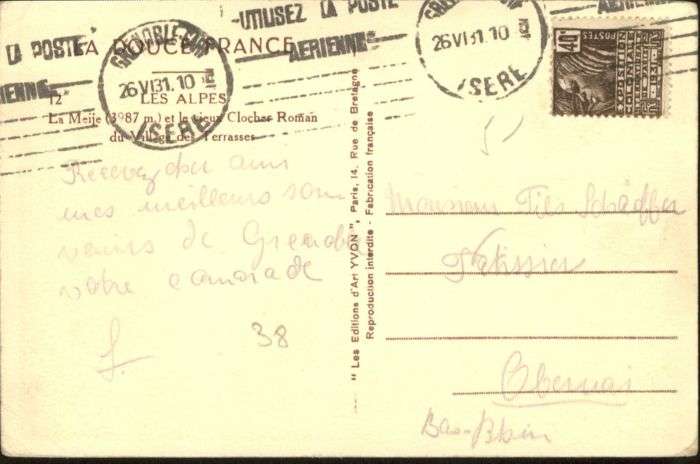 LA DOUCE FRANCE
12
LES ALPES
La Meije (3987 m.) et le vieux Clocher Roman
du Village des Terrasses
GRENOBLE-GARE
26 VI 31. 10
ISERE
-UTILISEZ LA POSTE
AERIENNE-
GRENOBLE-GARE
26 VI 31. 10
ISERE
LA POSTE
AERIENNE-
40c
POSTES
Recevez cher ami
mes meilleurs sou
venirs de Grenoble
votre camarade
J.
38
" Les Editions d'Art YVON ", Paris, 14, Rue de Bretagne
Reproduction interdite - Fabrication française
Monsieur Scheffer
Patissier
Obernai
Bas-Rhin